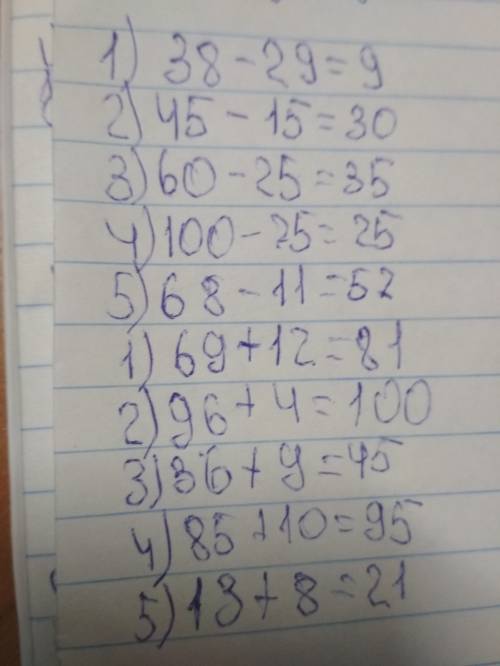 1) 38-29=9
2) 45-15=30
3) 60-25=35
4) 100-75=25
5) 68-11=57
1) 69+12=81
2) 96+4=100
3) 36+9=45
4) 85+10=95
5) 13+8=21